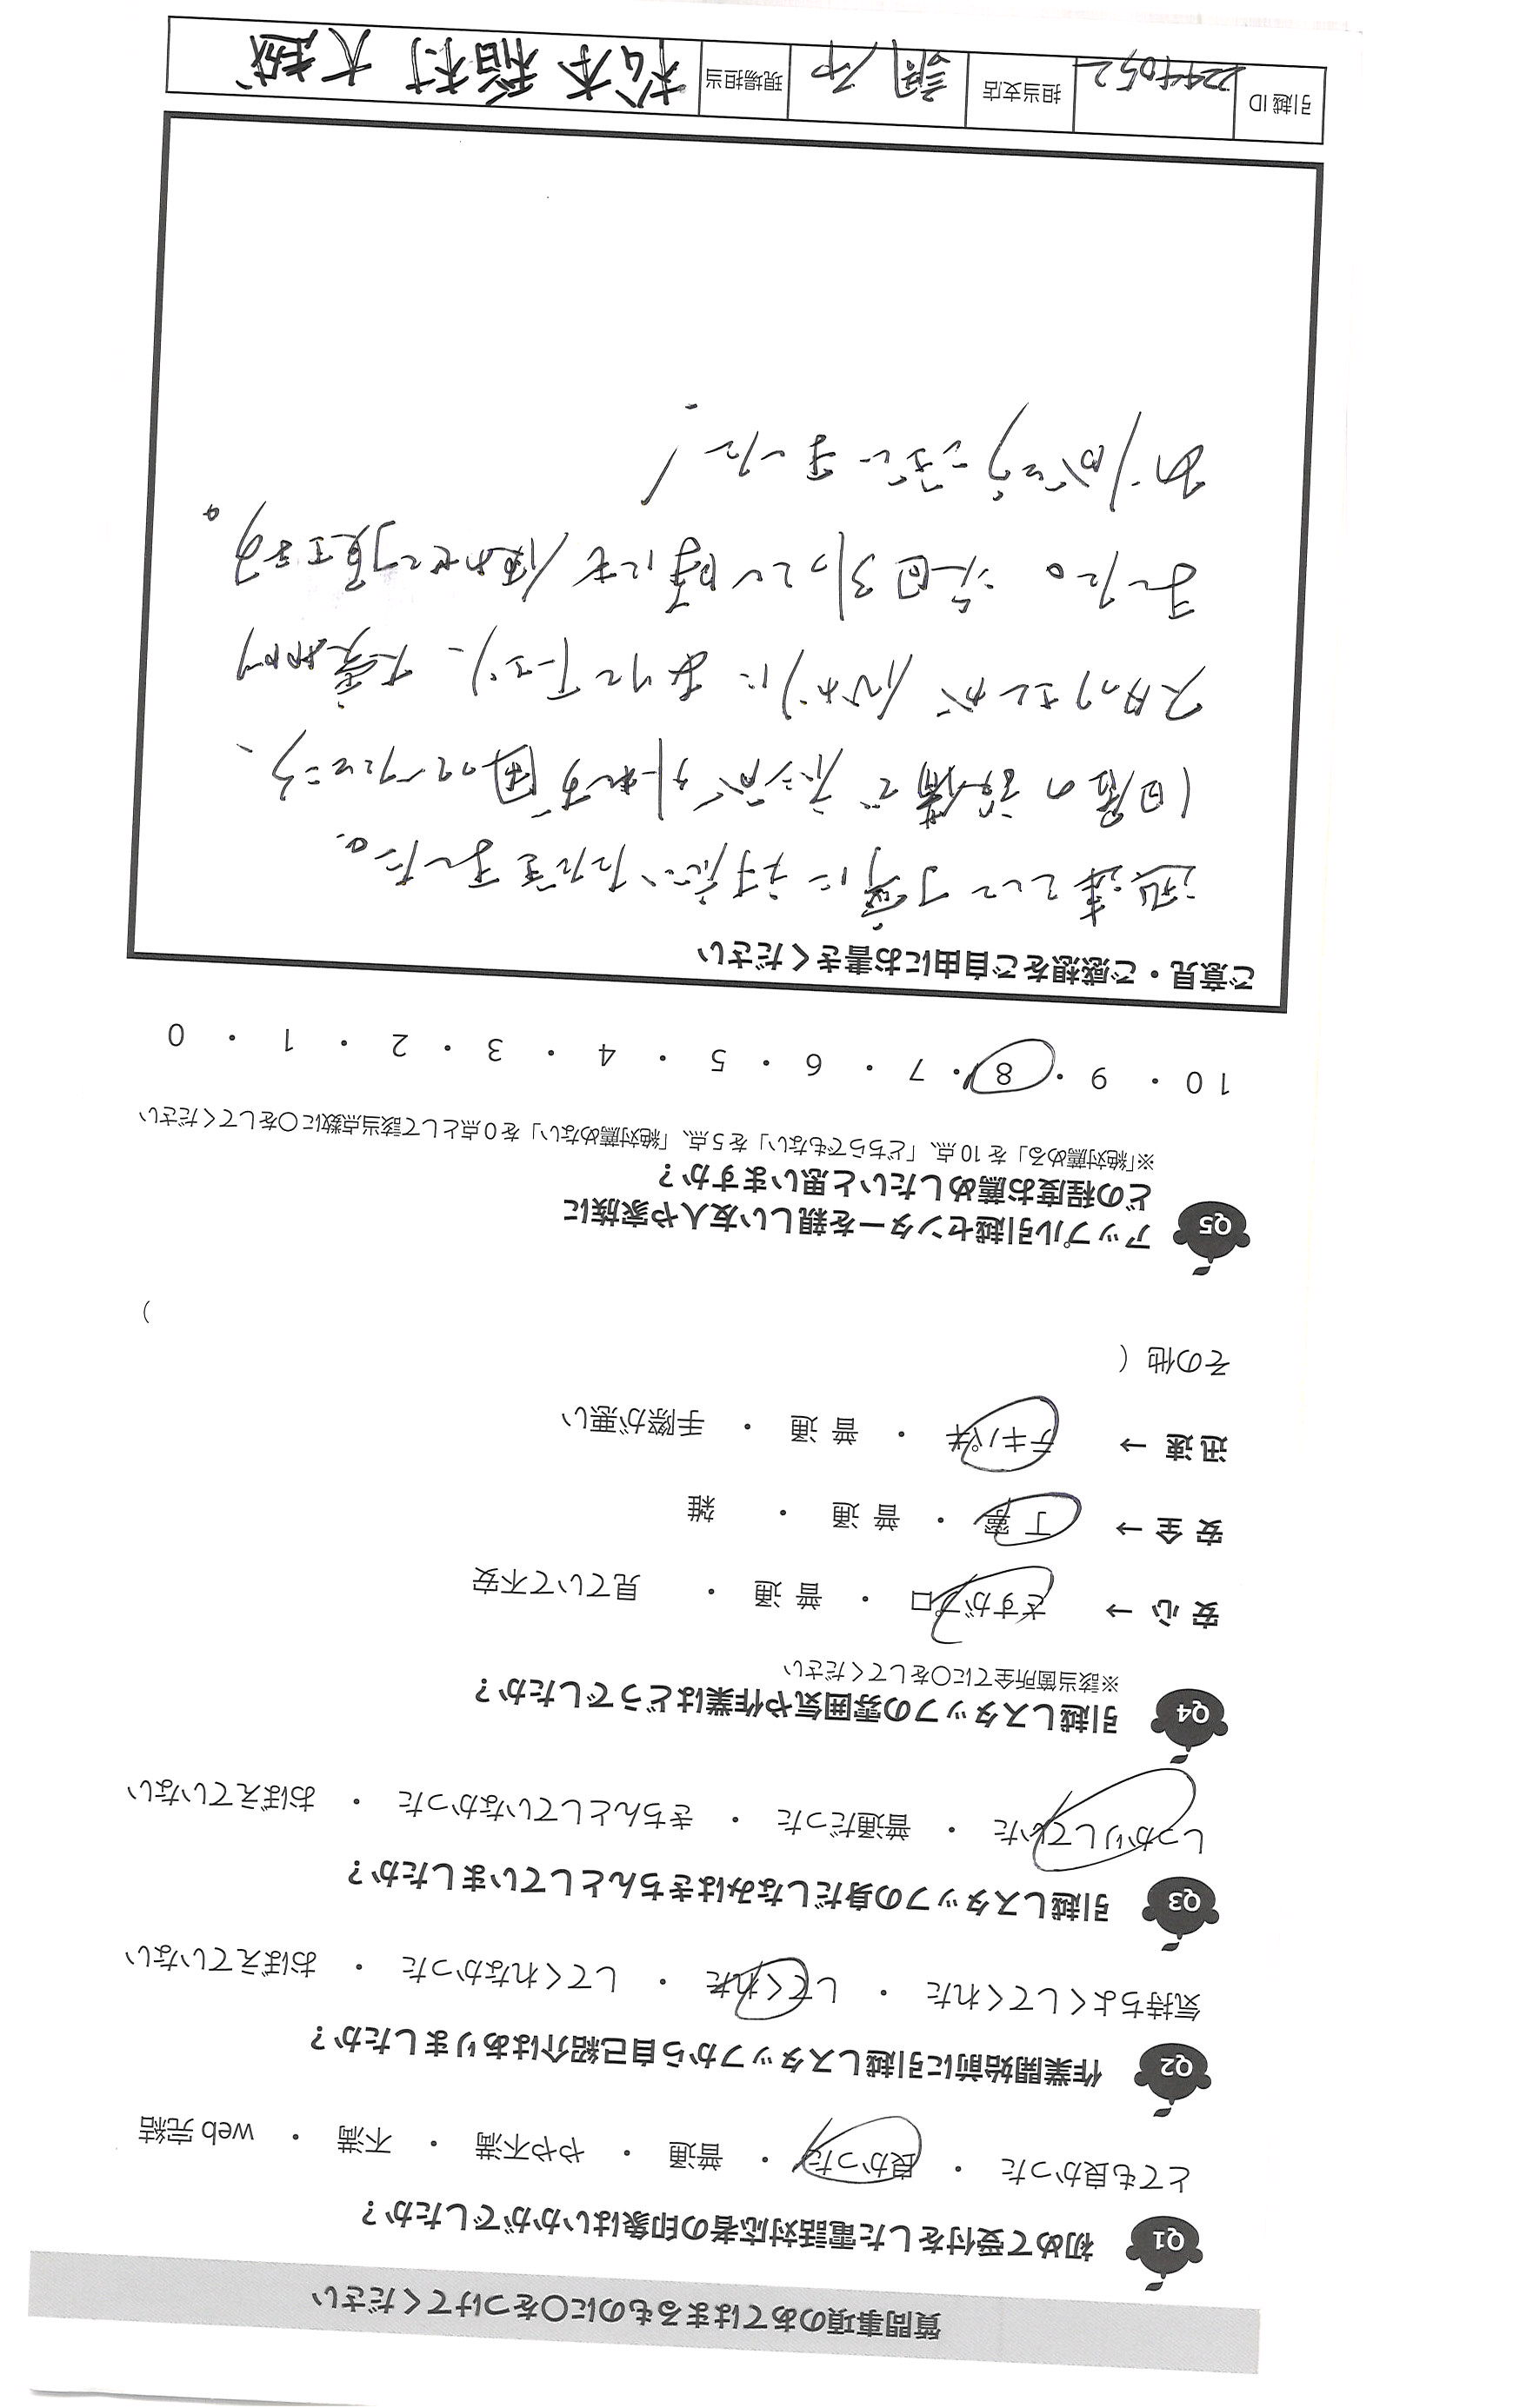 質問事項のあてはまるものに〇をつけてください
Q1 初めて受付をした電話対応者の印象はいかがでしたか？
とても良かった ・ 良かった ・ 普通 ・ やや不満 ・ 不満 ・ web 完結
Q2 作業開始前に引越しスタッフから自己紹介はありましたか？
気持ちよくしてくれた ・ してくれた ・ してくれなかった ・ おぼえていない
Q3 引越しスタッフの身だしなみはきちんとしていましたか？
しっかりしていた ・ 普通だった ・ きちんとしていなかった ・ おぼえていない
Q4 引越しスタッフの雰囲気や作業はどうでしたか？
※該当箇所全てに〇をしてください
安 心 → さすがプロ ・ 普 通 ・ 見ていて不安
安 全 → 丁 寧 ・ 普 通 ・ 雑
迅 速 → テキパキ ・ 普 通 ・ 手際が悪い
その他（ ）
Q5 アップル引越センターを親しい友人や家族に
どの程度お薦めしたいと思いますか？
※「絶対薦める」を 10 点、「どちらでもない」を 5 点、「絶対薦めない」を 0 点として該当点数に〇をしてください
10 ・ 9 ・ 8 ・ 7 ・ 6 ・ 5 ・ 4 ・ 3 ・ 2 ・ 1 ・ 0
ご意見・ご感想をご自由にお書きください
迅速として丁寧に対応いただきました。
旧居の設備でネジが外れず困っていたところ、
スタッフさんが代わりに あけて下さり、大変助け
ました。次回引っこし時にも使わせて頂きます。
ありがとうございました！
引越 ID 2244052 担当支店 調布 現場担当 松本 稲村 大越